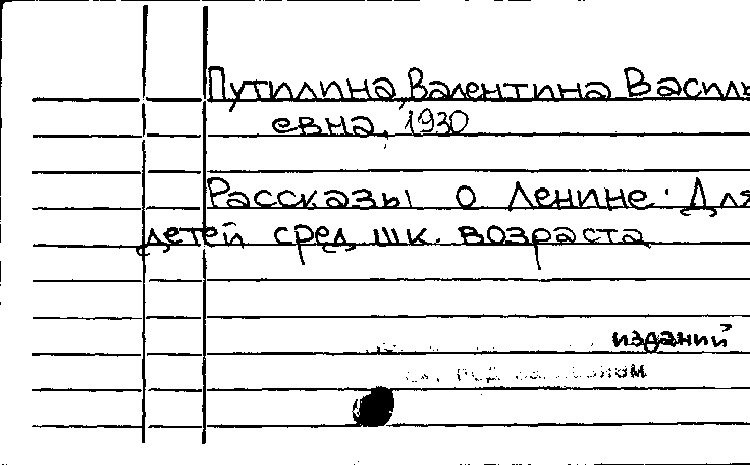 Путилина, Валентина Василь
евна, 1930
Рассказы о Ленине. Для
детей сред. шк. возраста
изданий